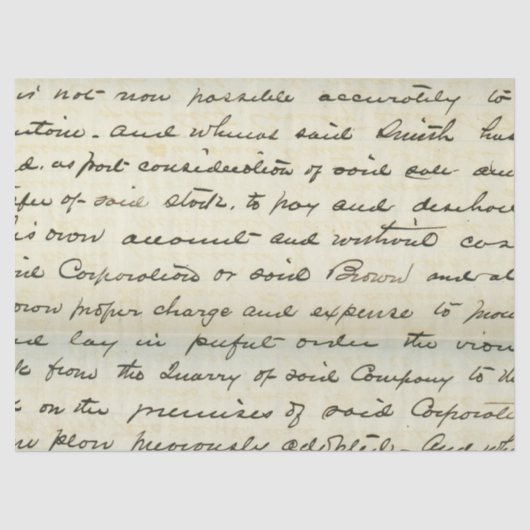 is not now possible accurately to
And whereas said Smith has
as part consideration of said sale and
of said stock, to pay and discha
his own account and without cos
Corporation or said Brown and at
own proper charge and expense to
and lay in perfect order the
from the Quarry of said Company to the
on the premises of said Corporati
plan previously adopted - And wh